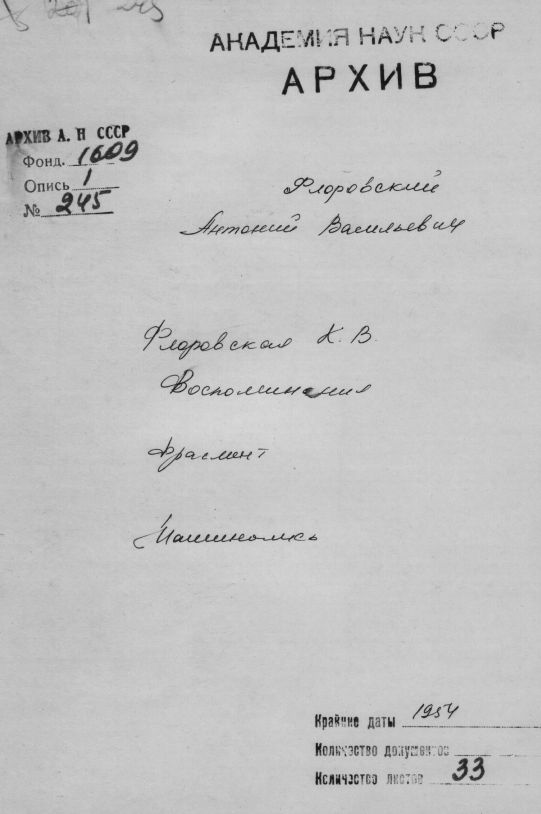 245
АКАДЕМИЯ НАУК СССР
АРХИВ
АРХИВ А. Н СССР
Фонд. 1609
Опись 1
№ 245
Флоровский
Антоний Васильевич
Флоровская К. В.
Воспоминания
Фрагмент
Машинопись
Крайние даты 1954
Количество документов
Количество листов 33